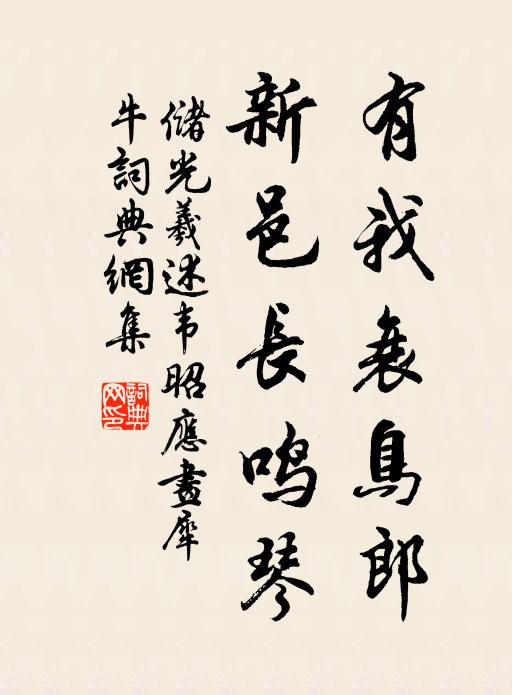 有我衰鳥郎
新邑長鳴琴
儲光羲述韦昭應畫犀
牛詞典網集
詞典網印